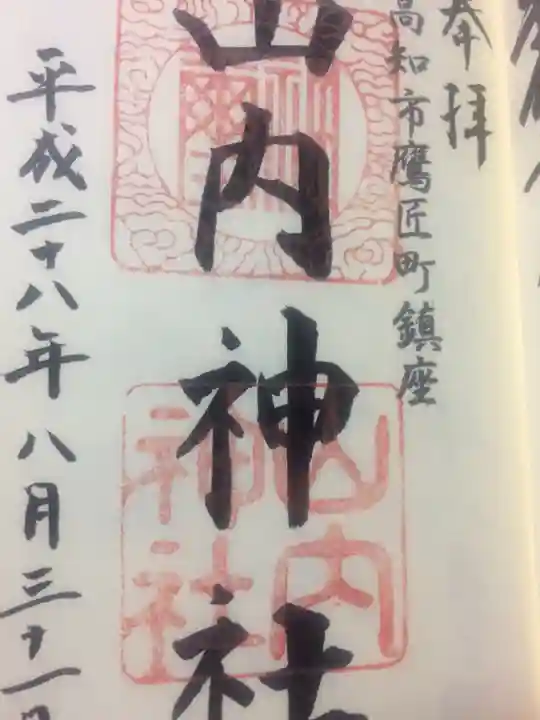 奉拝
高知市鷹匠町鎮座
山内神社
山内
神社
平成二十八年八月三十一日